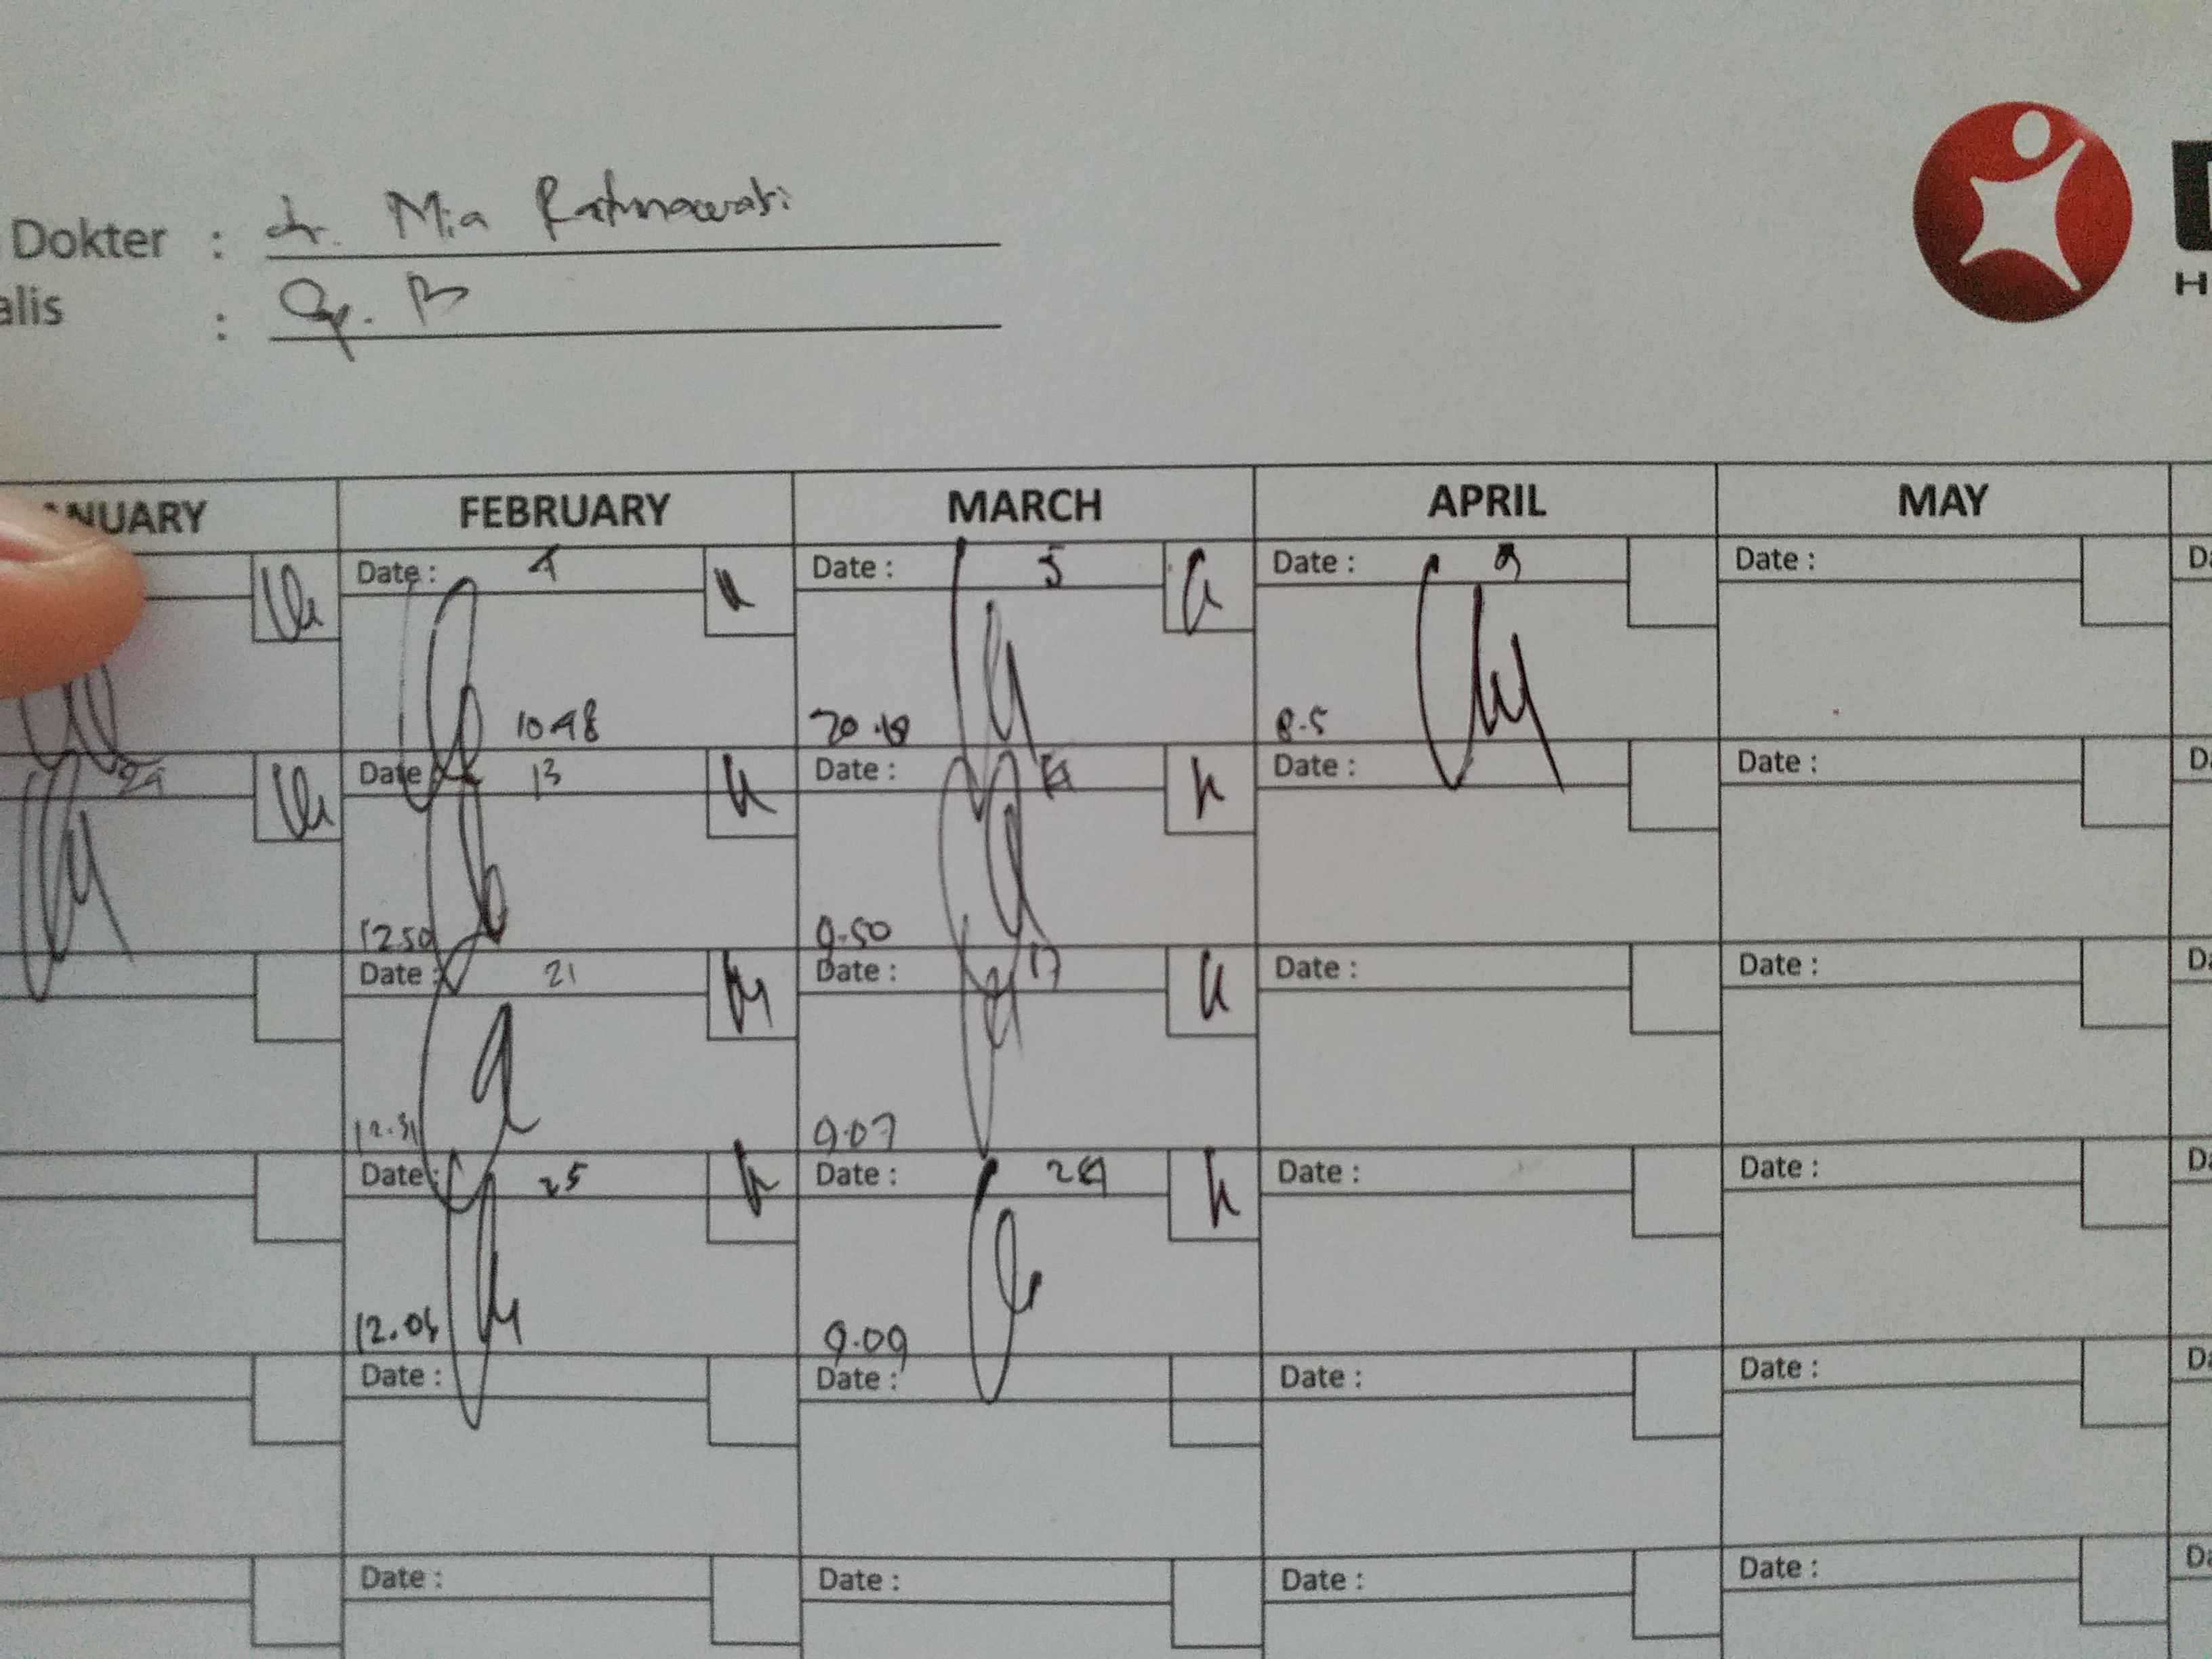 Dokter : dr. Mia Ratnawati
alis : Sp. B
H
NUARY FEBRUARY MARCH APRIL MAY
Date : 4 Date : 5 Date : Date : Da
10.48 20.18 8.5
29 Date : 13 Date : Date : Date : Da
12.50 9.50
Date : 21 Date : 17 Date : Date : Da
12.31 9.07
Date : 25 Date : 24 Date : Date : Da
12.04 9.09
Date : Date : Date : Date : Da
Date : Date : Date : Date : Da